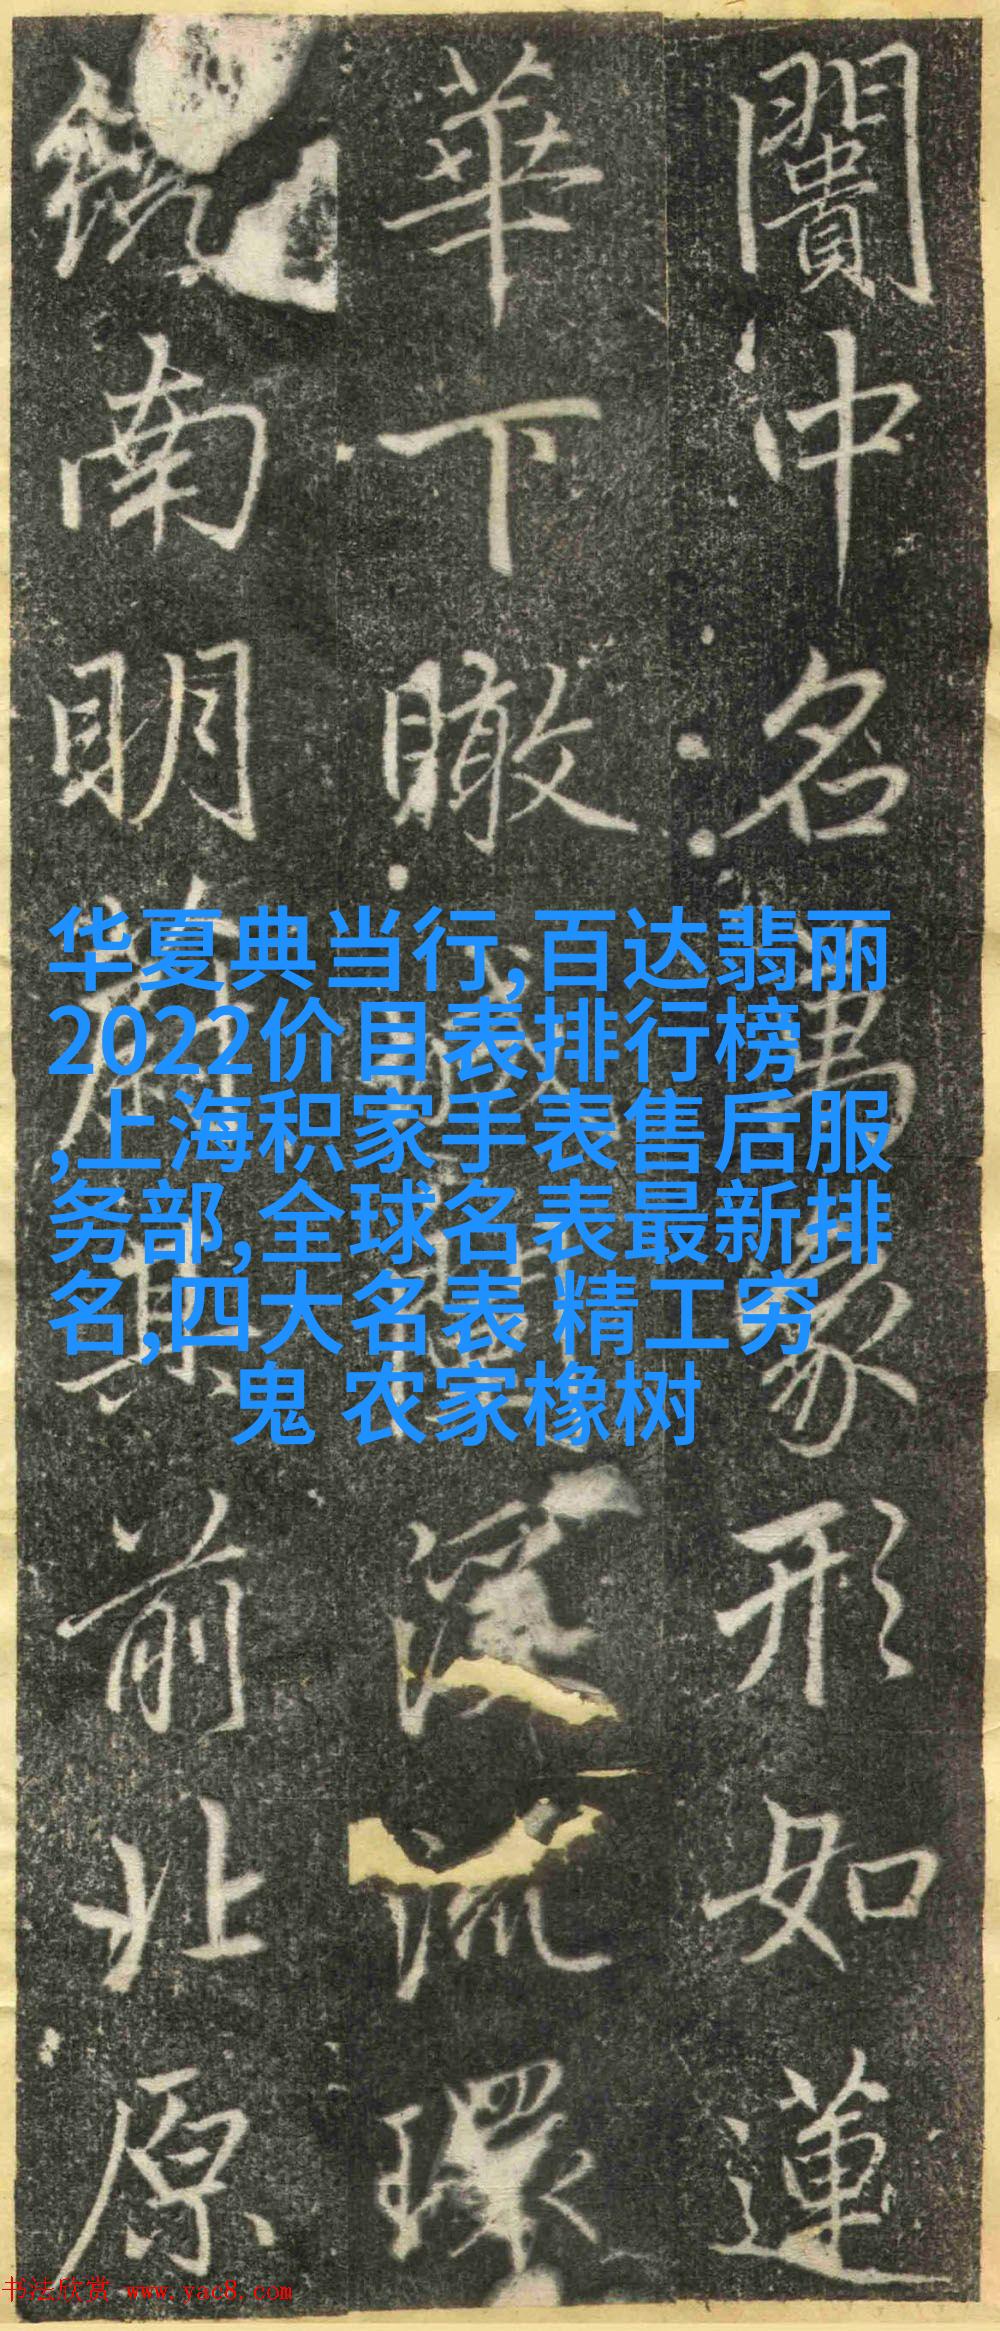 闠中名象形如蓮
華下瞰城深流環
南明其前北原
华夏典当行,百达翡丽
2022价目表排行榜
,上海积家手表售后服
务部,全球名表最新排
名,四大名表 精工穷
鬼 农家橡树
书法欣赏 www.yac8.com